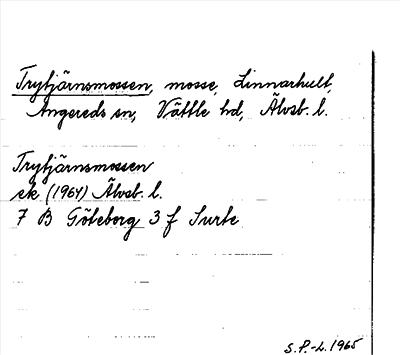 Trytjärnsmossen, mosse, Linnarhult,
Angereds sn, Vättle hd, Älvsb. l.
Trytjärnsmossen
ek (1964) Älvsb. l.
7 B Göteborg 3 f Surte
S.P.-L. 1965